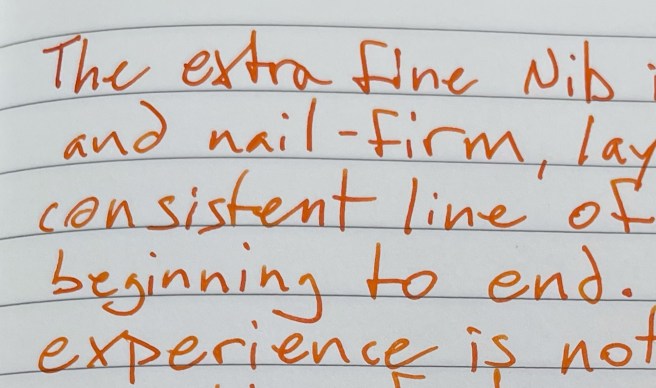 The extra fine Nib
and nail-firm, lay
consistent line of
beginning to end.
experience is not